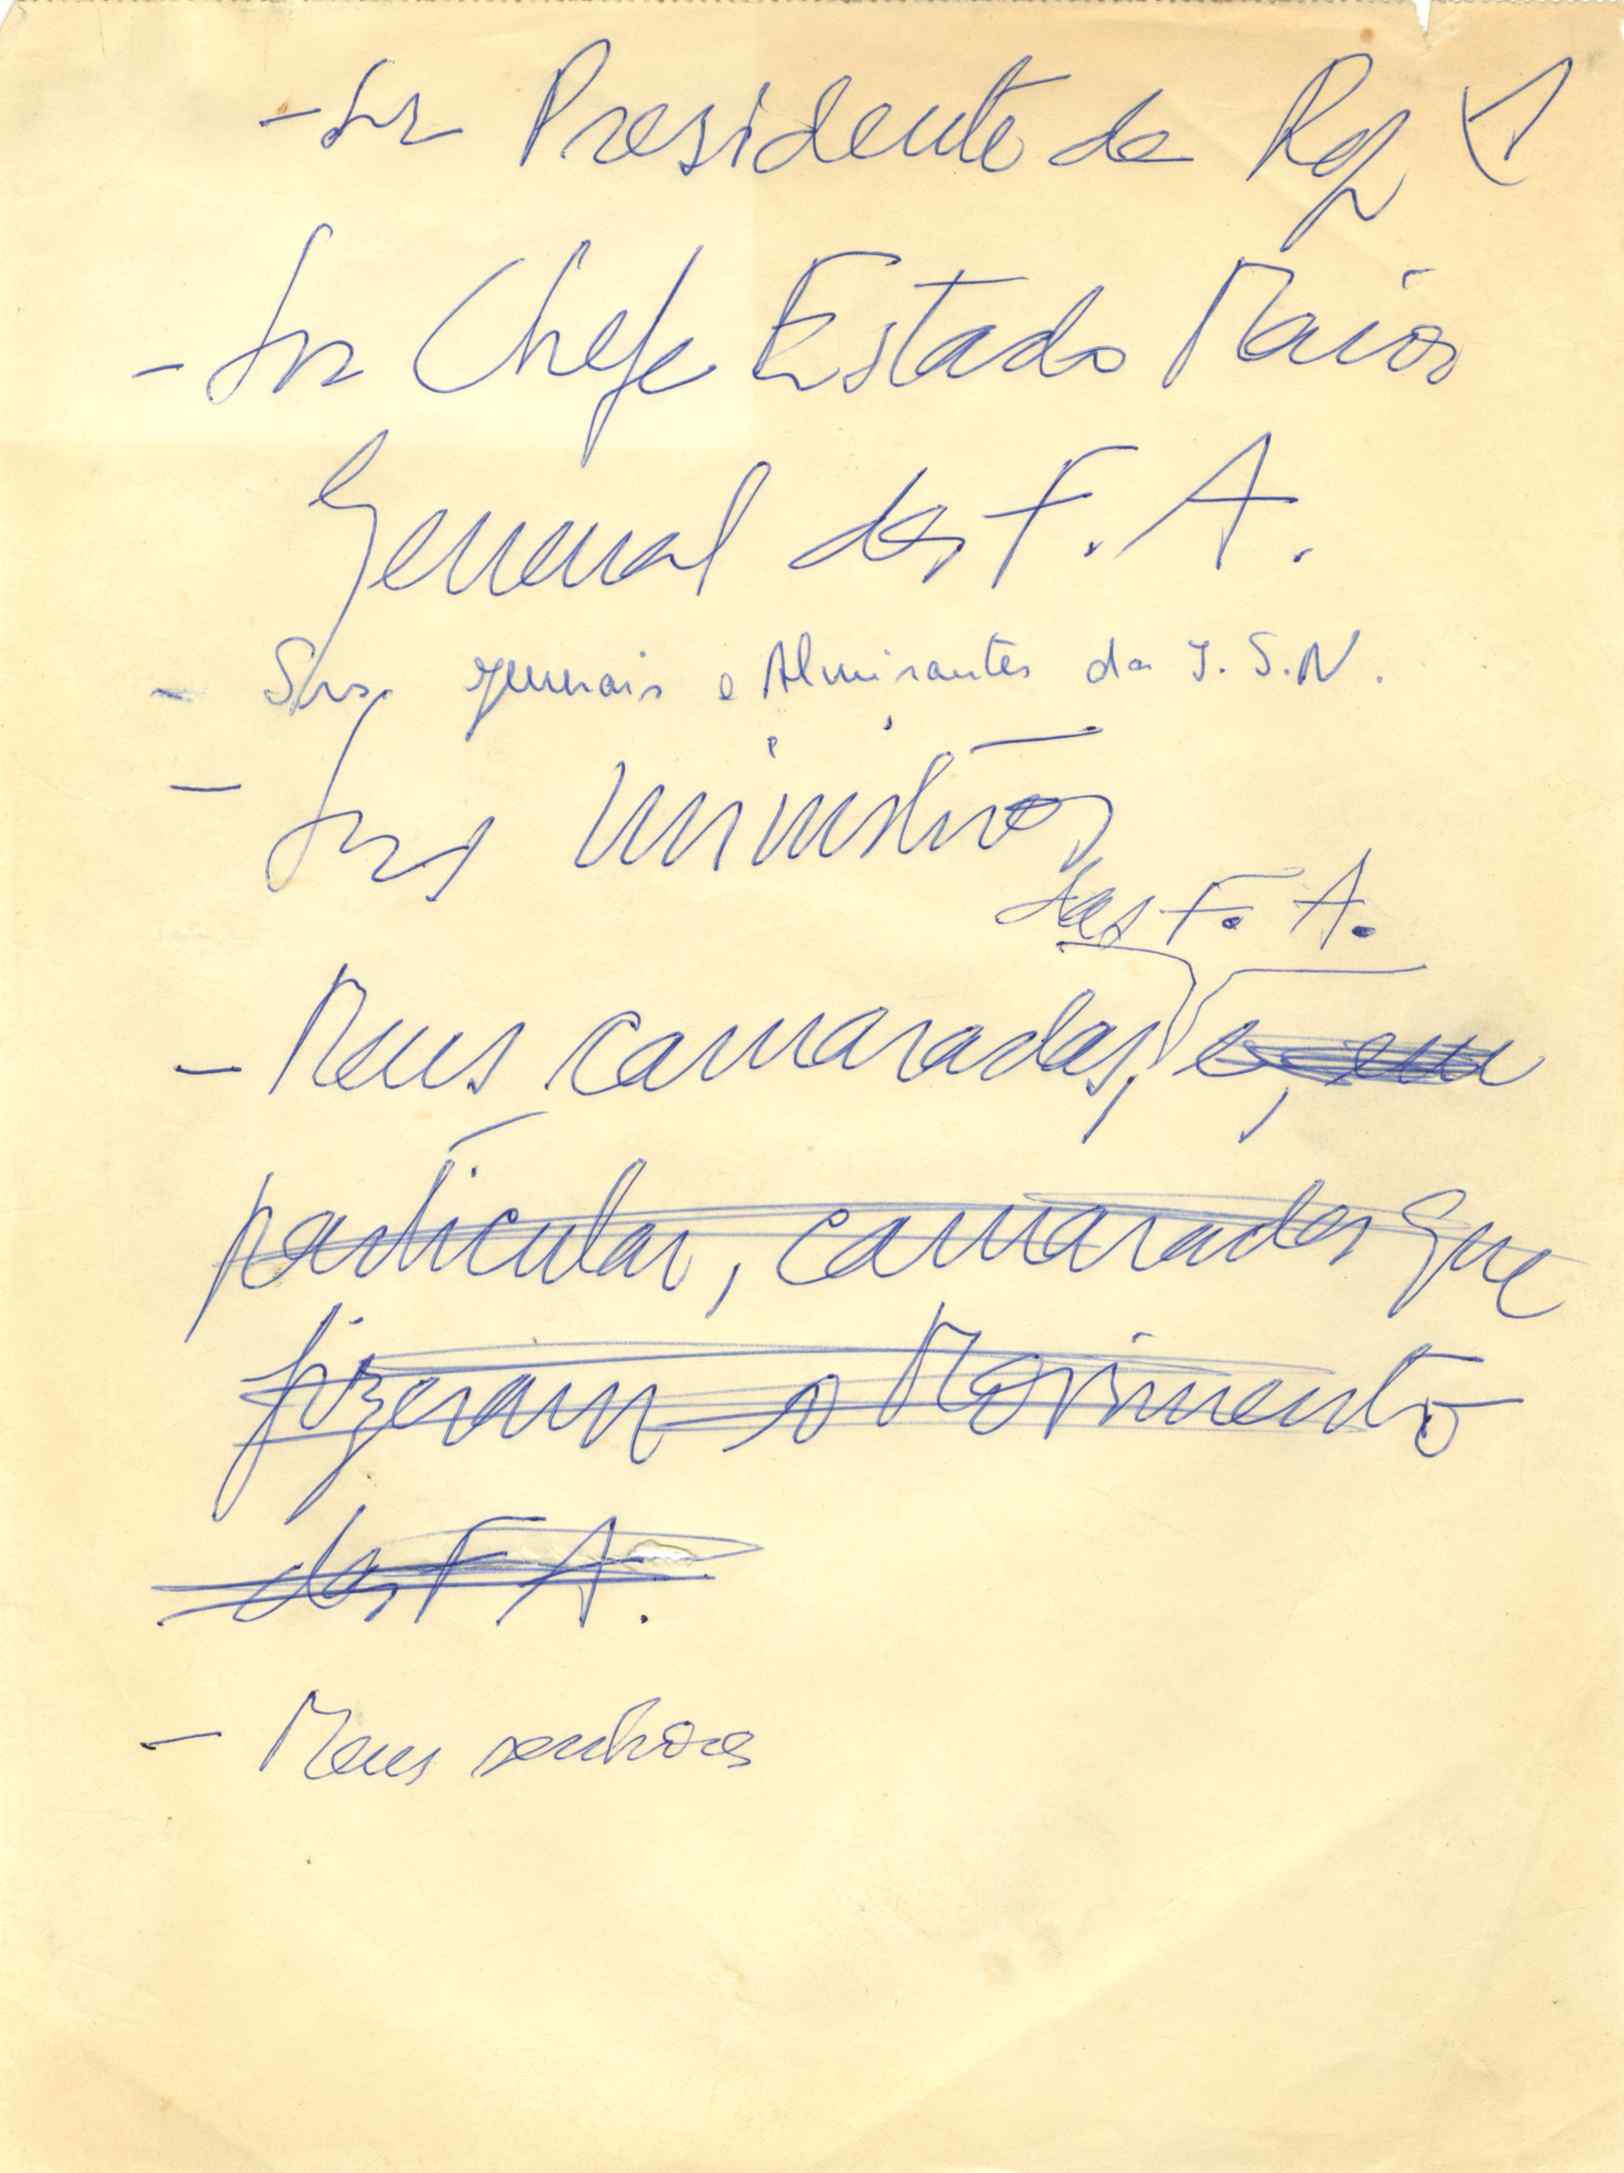 - Sr Presidente da Rep
- Sr Chefe Estado Maior
General das F. A.
- Srs. generais e Almirantes da J. S. N.
- Srs ministros
das F. A.
- Meus camaradas, e, em
particular, camaradas que
fizeram o Movimento
das F A.
- Meus senhores